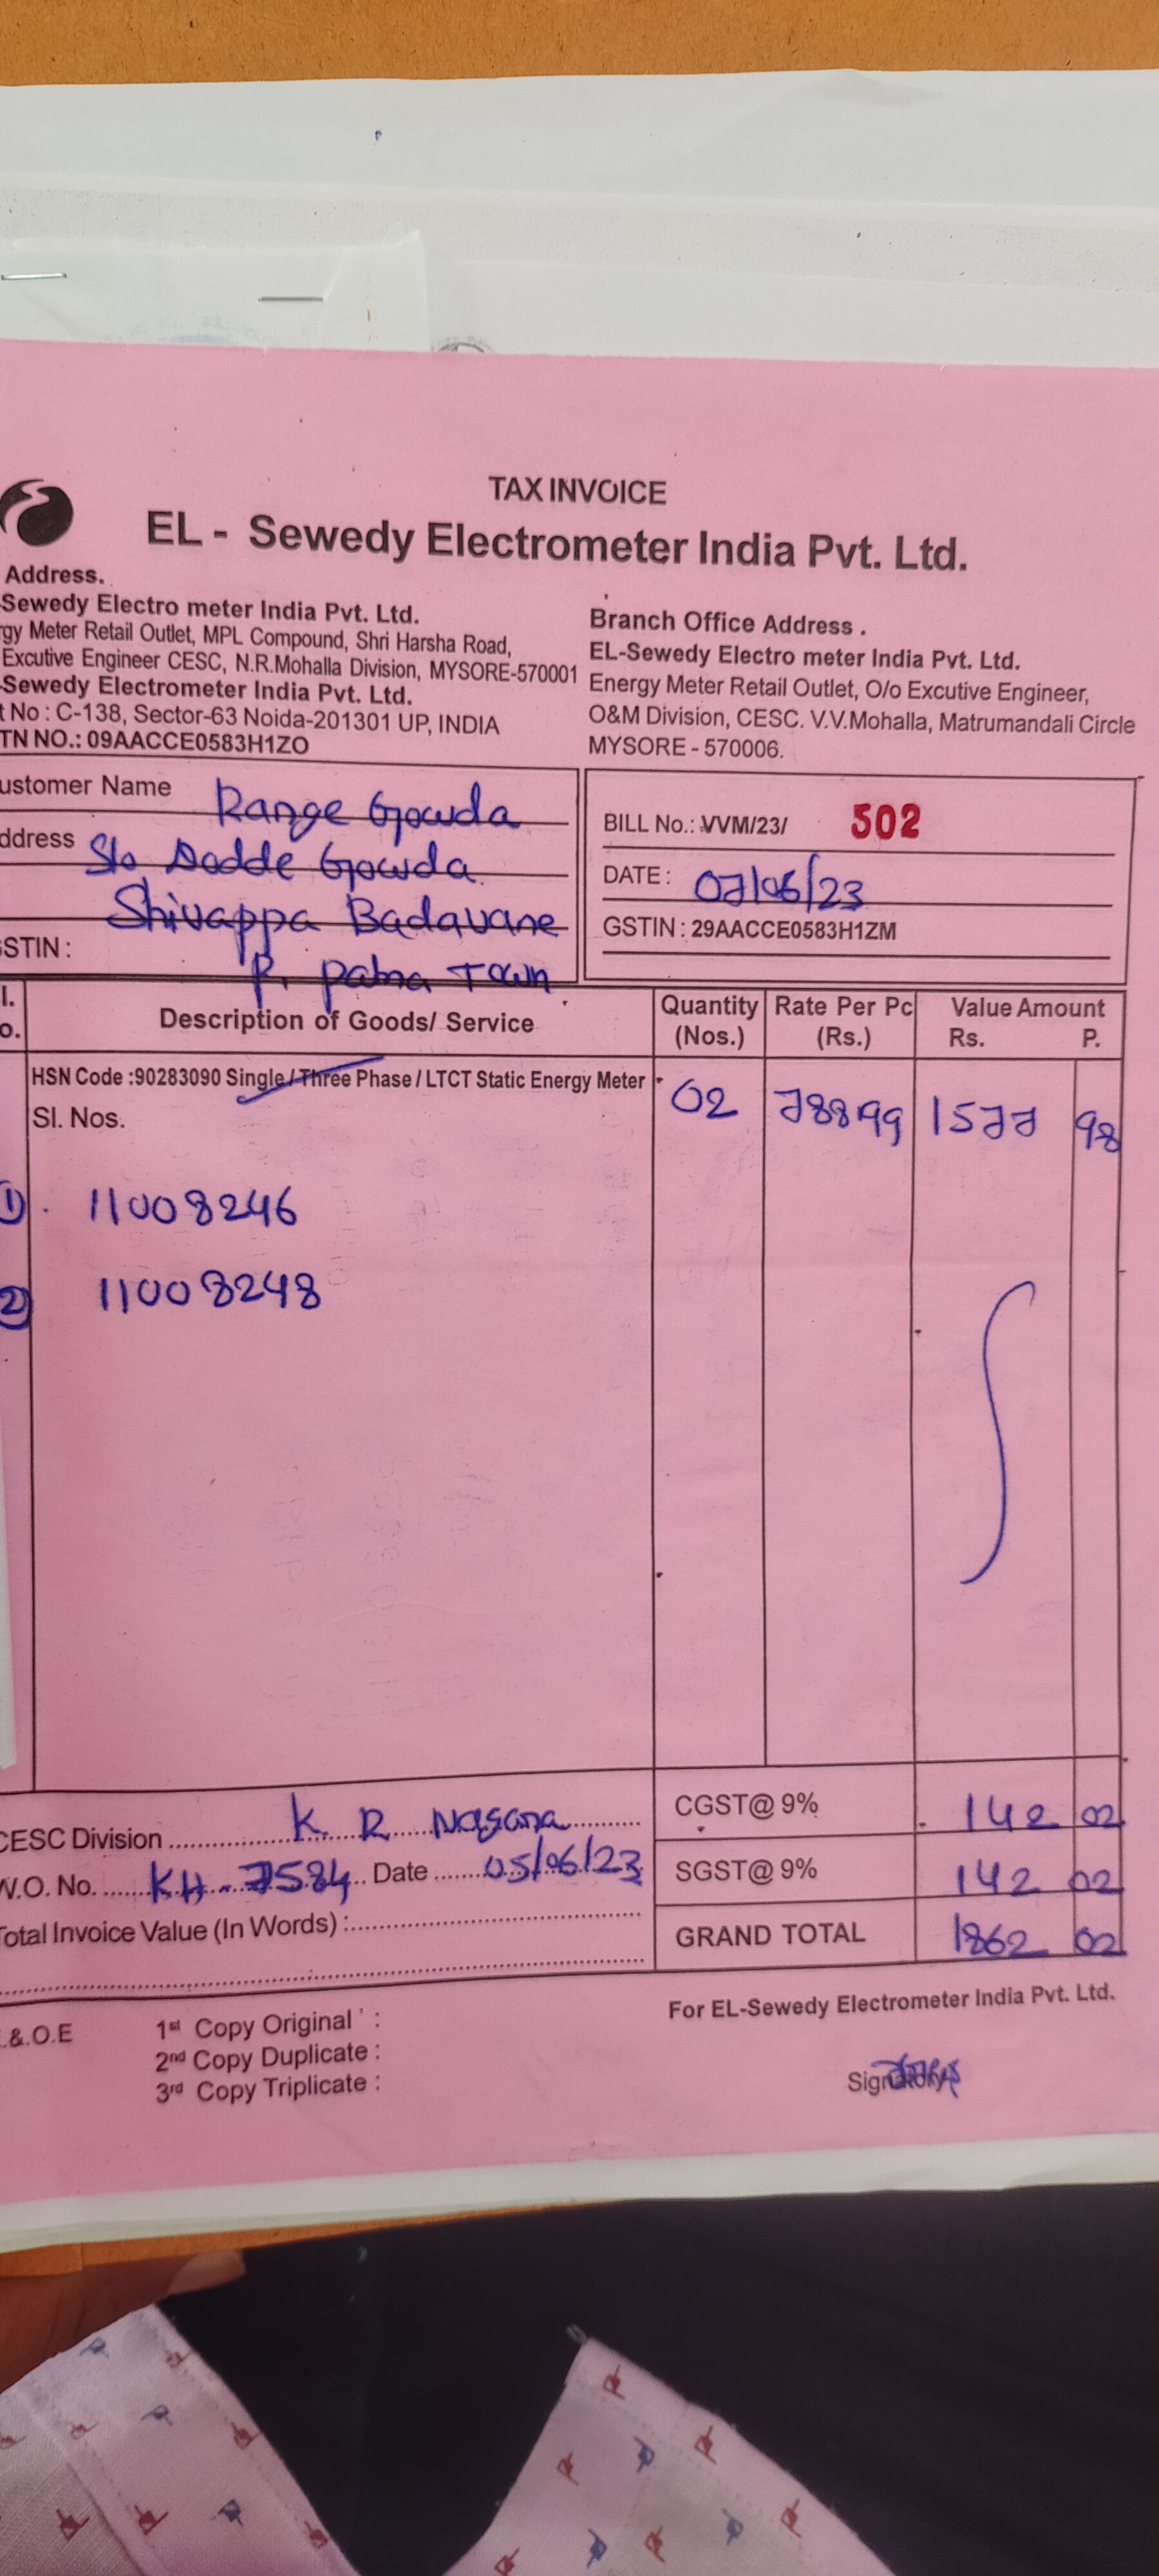 TAX INVOICE
EL - Sewedy Electrometer India Pvt. Ltd.
Address.
-Sewedy Electro meter India Pvt. Ltd.
gy Meter Retail Outlet, MPL Compound, Shri Harsha Road,
Excutive Engineer CESC, N.R.Mohalla Division, MYSORE-570001
-Sewedy Electrometer India Pvt. Ltd.
t No : C-138, Sector-63 Noida-201301 UP, INDIA
TN NO.: 09AACCE0583H1ZO
Branch Office Address .
EL-Sewedy Electro meter India Pvt. Ltd.
Energy Meter Retail Outlet, O/o Excutive Engineer,
O&M Division, CESC. V.V.Mohalla, Matrumandali Circle
MYSORE - 570006.
ustomer Name Range Gowda
ddress S/o Dodde Gowda
Shivappa Badavane
STIN : P. Patna Town
BILL No.: VVM/23/ 502
DATE : 07/06/23
GSTIN : 29AACCE0583H1ZM
l. o. Description of Goods/ Service Quantity (Nos.) Rate Per Pc (Rs.) Value Amount Rs. P.
HSN Code :90283090 Single / Three Phase / LTCT Static Energy Meter 02 78899 1577 98
Sl. Nos.
1 . 11008246
2 11008248
CGST@ 9% 142 02
CESC Division K R Nagara
SGST@ 9% 142 02
W.O. No. KH-7584 Date 05/06/23
Total Invoice Value (In Words) :
GRAND TOTAL 1862 02
For EL-Sewedy Electrometer India Pvt. Ltd.
.&.O.E 1st Copy Original :
2nd Copy Duplicate :
3rd Copy Triplicate :
Signatory